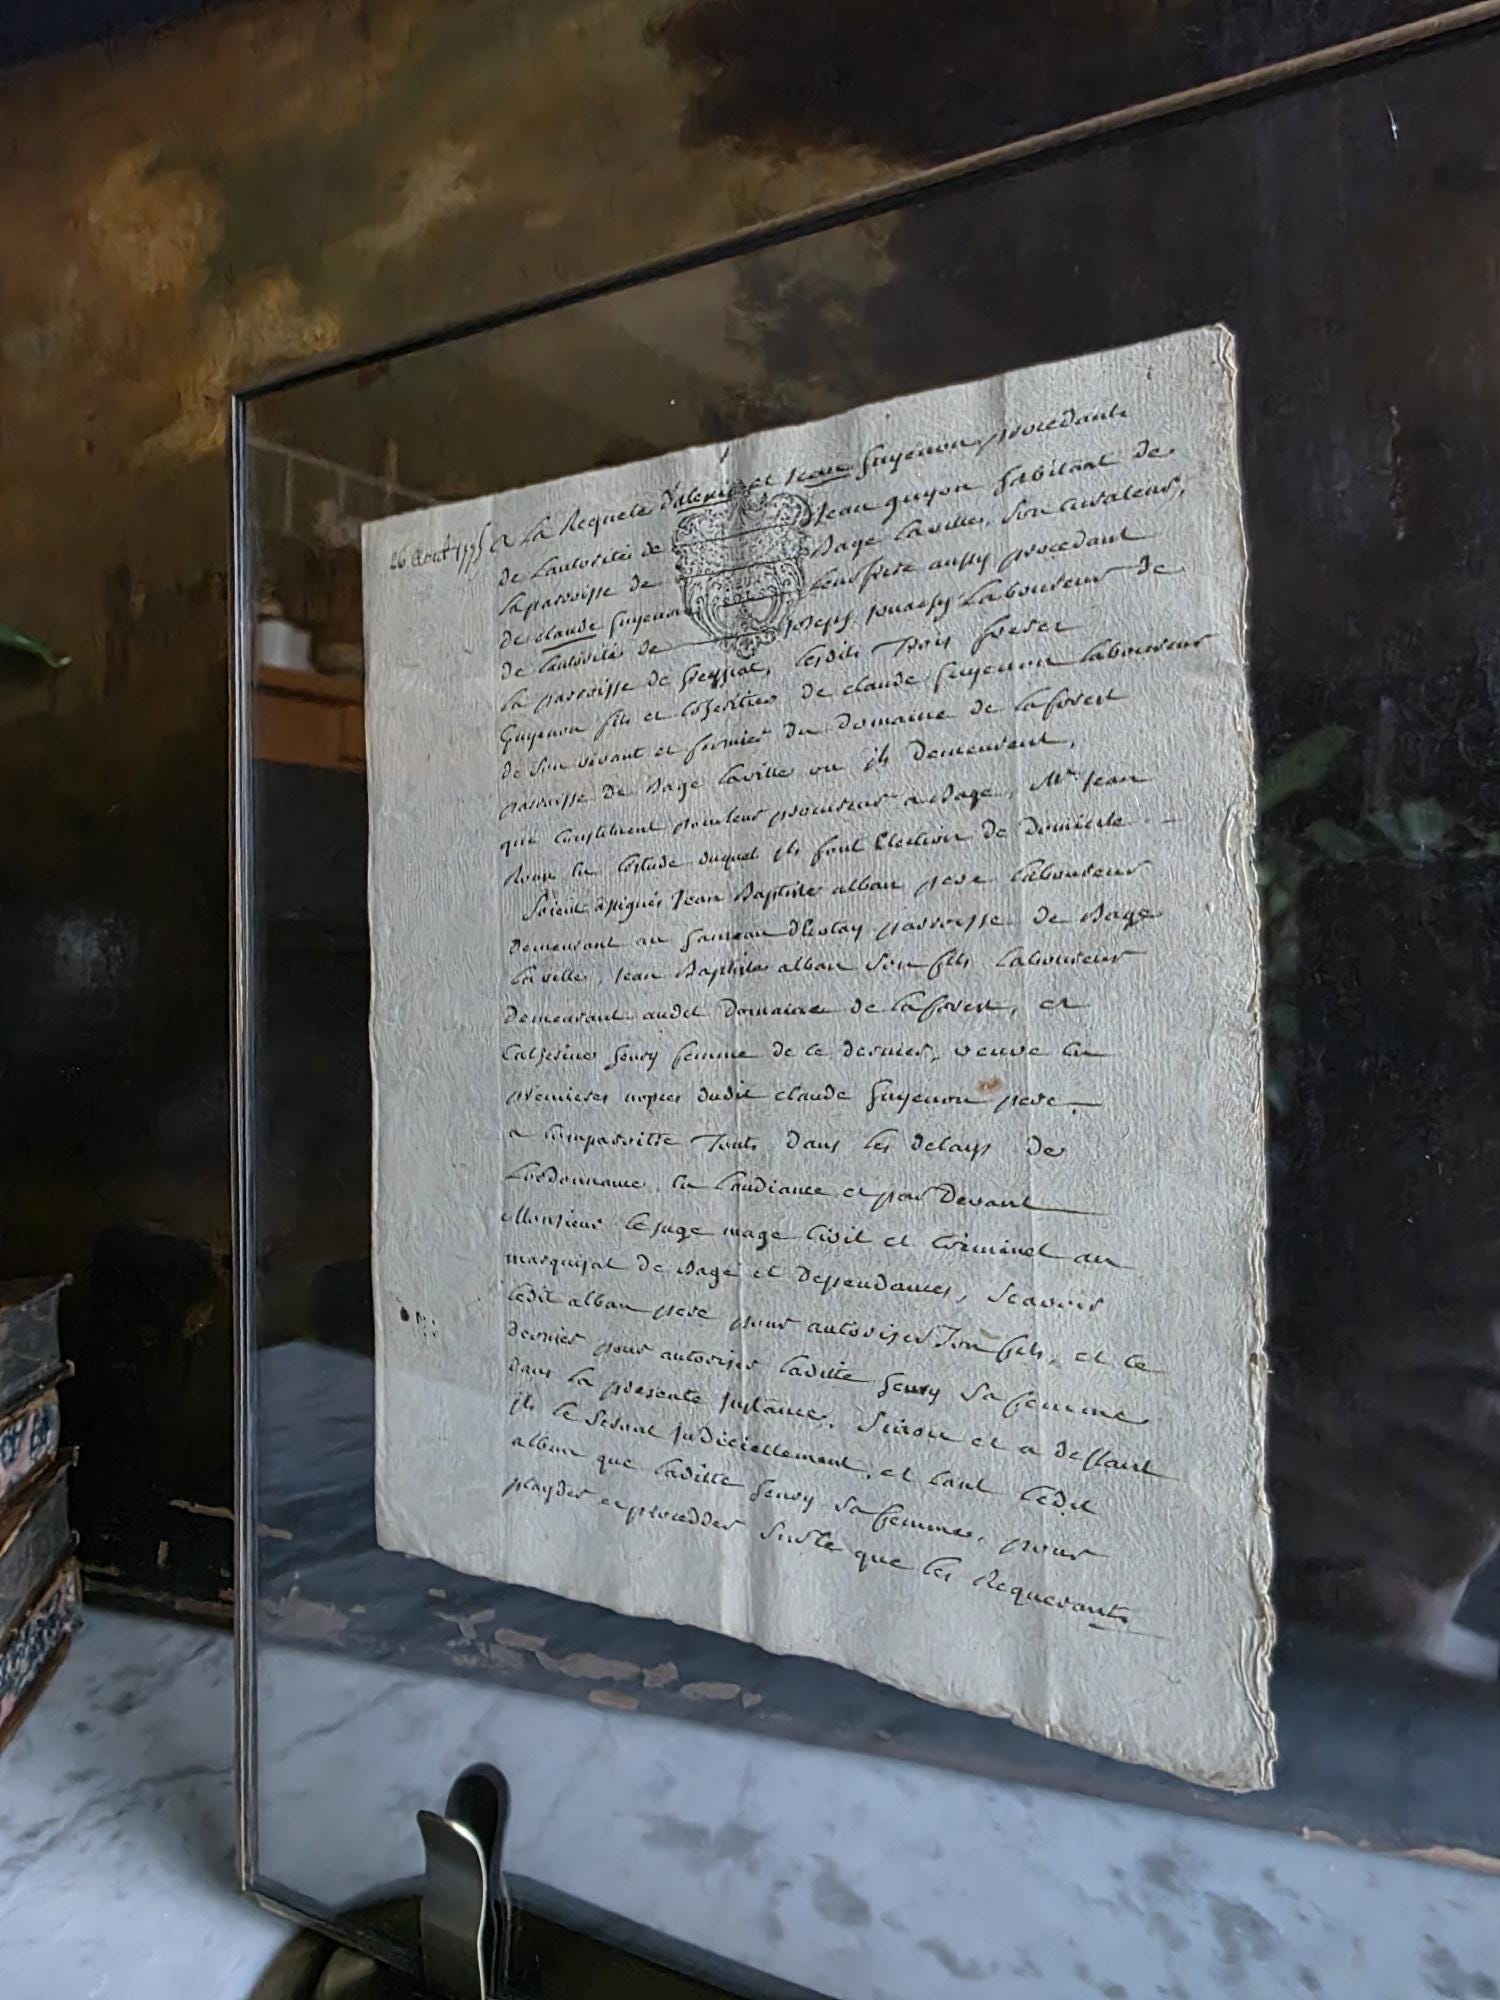 26 Aout 1775 a la Requete et Jean Guyenon procedant
de Lautorité de Jean guyon habitant de
la paroisse de Bage la ville, Son Curateur,
de claude Guyenon Leur frere aussy procedant
de Lautorité de joseph Laboureur de
la parroisse de lesdits Trois freres
Guyenon fils et Coheritiers de claude Guyenon laboureur
de Son vivant et fermier du Domaine de laforest
parroisse de Bage laville ou ils Demeurent,
qui Constituent pour leur procureur a Bage, Me Jean
en Lestude duquel ils font Election de Domicile
Soient assignés Jean Baptiste alban pere laboureur
Demeurant au hameau parroisse de Bage
la ville, Jean Baptiste alban Son fils laboureur
Demeurant audit Domaine de laforest, et
Catherine femme de ce dernier, veuve en
premieres nopces dudit claude Guyenon pere,
a Comparoitre Touts Dans les delays de
Lordonnance, en Laudiance et par Devant
Monsieur le juge mage Civil et Criminel au
marquisat de Bagé et Dependances, Scavoir
ledit alban pere pour autoriser Son fils, et ce
dernier pour autoriser laditte Sa femme
Dans la presente Instance, Sinon et a deffaut
ils le Seront judiciellement, et tant ledit
alban que laditte Sa femme, pour
playder et procedder Surce que les Requerants